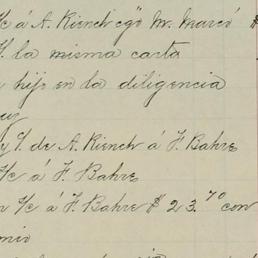 /c á A. Riench cgo" Mr. Marcó $
la misma carta
hijo en la diligencia
y S. de A. Riench á F. Bahre
/c á F. Bahre
/c á F. Bahre $ 23.70 con